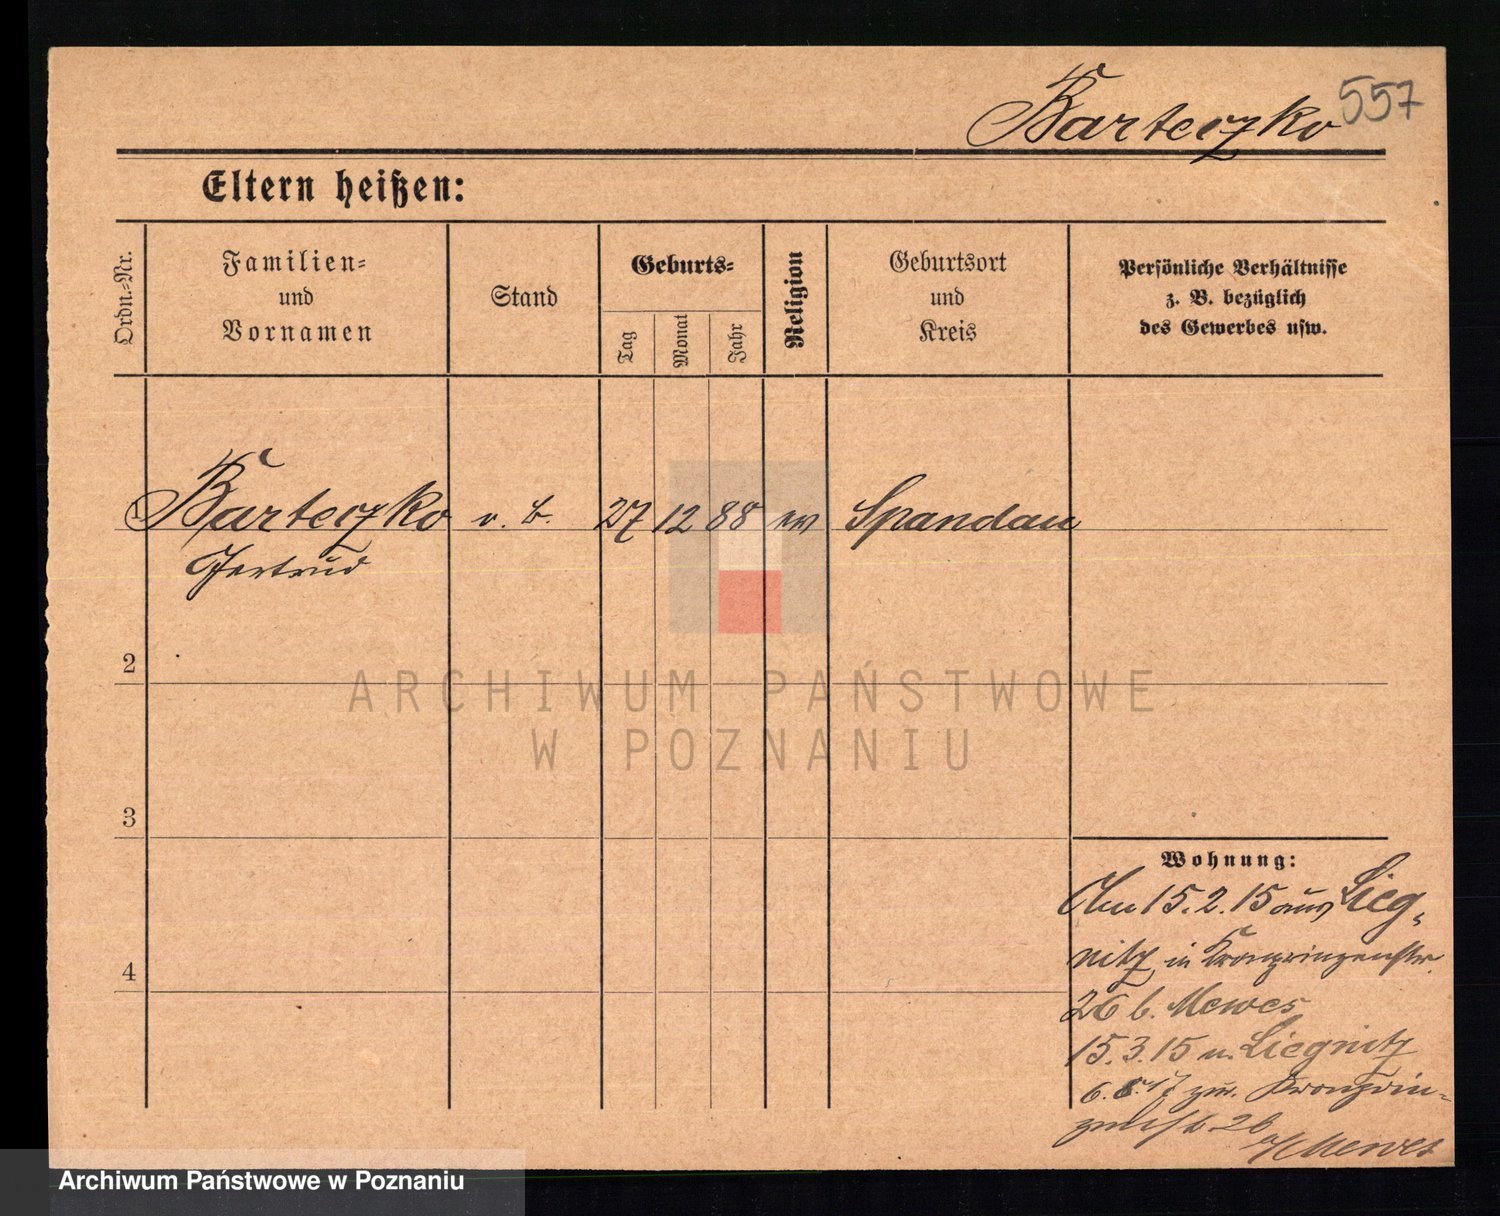 Barteczko 557
Eltern heißen:
Ordn.-Nr.
Familien-
und
Vornamen
Stand
Geburts-
Tag
Monat
Jahr
Religion
Geburtsort
und
Kreis
Persönliche Verhältnisse
z. B. bezüglich
des Gewerbes usw.
1 Barteczko o. B. 27 12 88 ev Spandau
Gertrud
2
3
4
Wohnung:
Am 15.2.15 aus Lieg-
nitz in Kronprinzenstr.
26 b. Mewes
15.3.15 n. Liegnitz
6.8.17 zur. Kronprin-
zenstr. 26
b/Mewes
ARCHIWUM PAŃSTWOWE
W POZNANIU
Archiwum Państwowe w Poznaniu